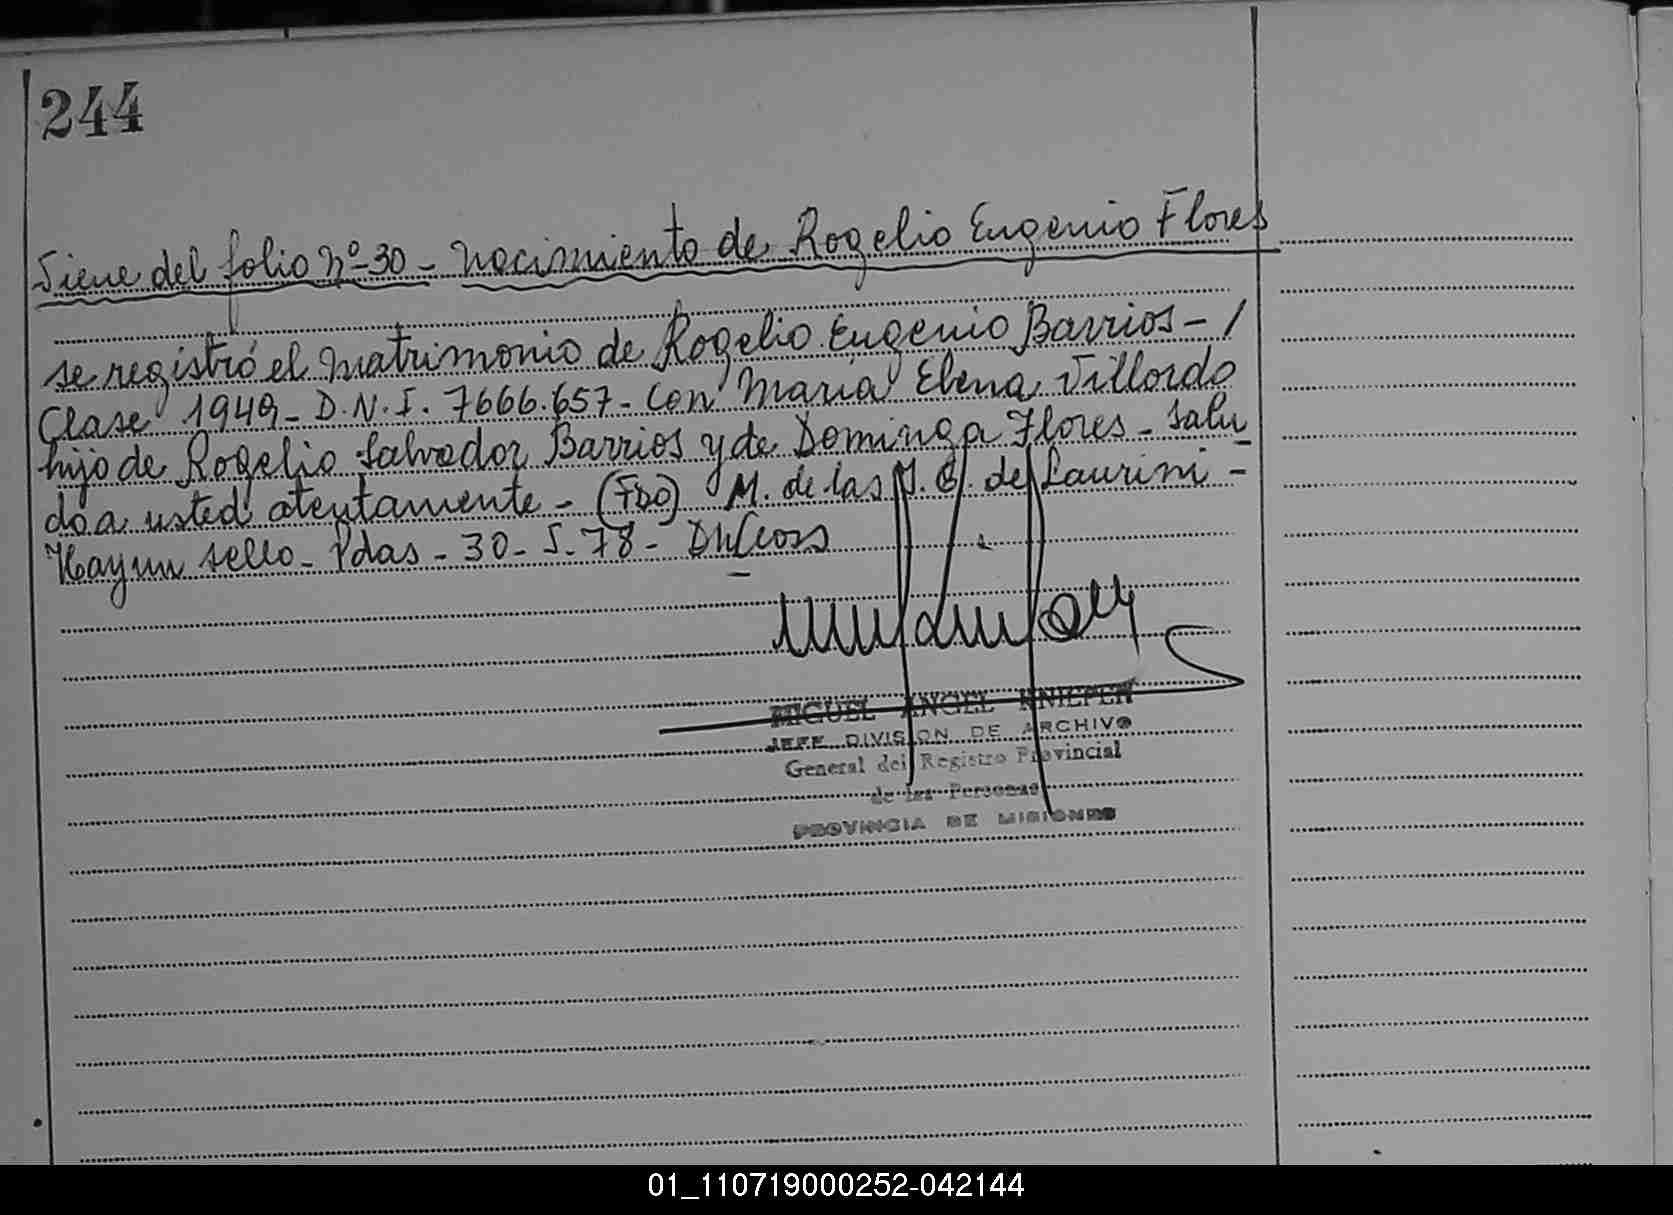 244
Viene del folio Nº-30- Nacimiento de Rogelio Eugenio Flores
se registró el matrimonio de Rogelio Eugenio Barrios-/
Clase 1949- D.N.I. 7666.657- con María Elena Villordo
hijo de Rogelio Salvador Barrios y de Dominga Flores- Salu
do a usted atentamente- (FDO) M. de las M. C. de Laurini-
Hay un sello- Pdas- 30-5-78-
MIGUEL ANGEL KNIEPER
JEFE DIVISION DE ARCHIVO
General del Registro Provincial
de las Personas
PROVINCIA DE MISIONES
01_110719000252-042144